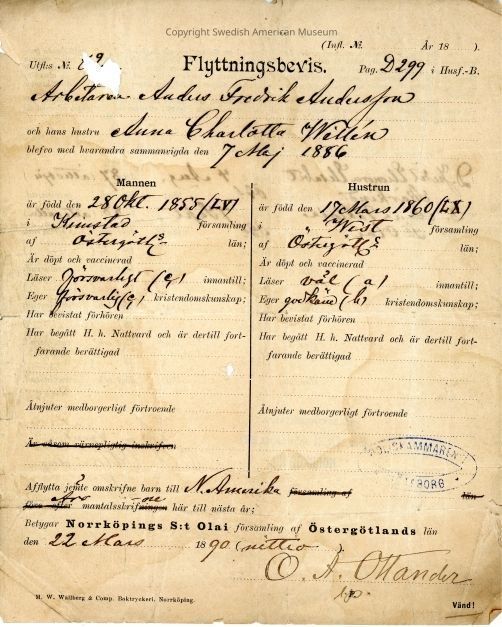 Copyright Swedish American Museum
(Infl. №. År 18 ).
Utfl:s №. 59. Flyttningsbevis. Pag. D 299 i Husf.-B.
Arbetaren Anders Fredrik Andersson
och hans hustru Anna Charlotta Willén
blefvo med hvarandra sammanvigda den 7 Maj 1886
Mannen
är född den 28 Okt. 1855 (LV)
i Kimstad församling
af Östergötl:s län;
Är döpt och vaccinerad
Läser försvarligt (c) innantill;
Eger försvarlig (c) kristendomskunskap;
Har bevistat förhören
Har begått H. h. Nattvard och är dertill fort-
farande berättigad
Åtnjuter medborgerligt förtroende
Är såsom värnepligtig inskrifven
Hustrun
är född den 17 Mars 1860 (LX)
i Wist församling
af Östergötl:s län;
Är döpt och vaccinerad
Läser väl (a) innantill;
Eger godkänd (b) kristendomskunskap;
Har bevistat förhören
Har begått H. h. Nattvard och är dertill fort-
farande berättigad
Åtnjuter medborgerligt förtroende
Afflytta jemte omskrifne barn till N. Amerika församling af län
mantalsskrifningen här till nästa år;
Betygar Norrköpings S:t Olai församling af Östergötlands län
den 22 Mars 1890 (nittio)
O. A. Ottander
M. W. Wallberg & Comp. Boktryckeri, Norrköping.
Vänd!